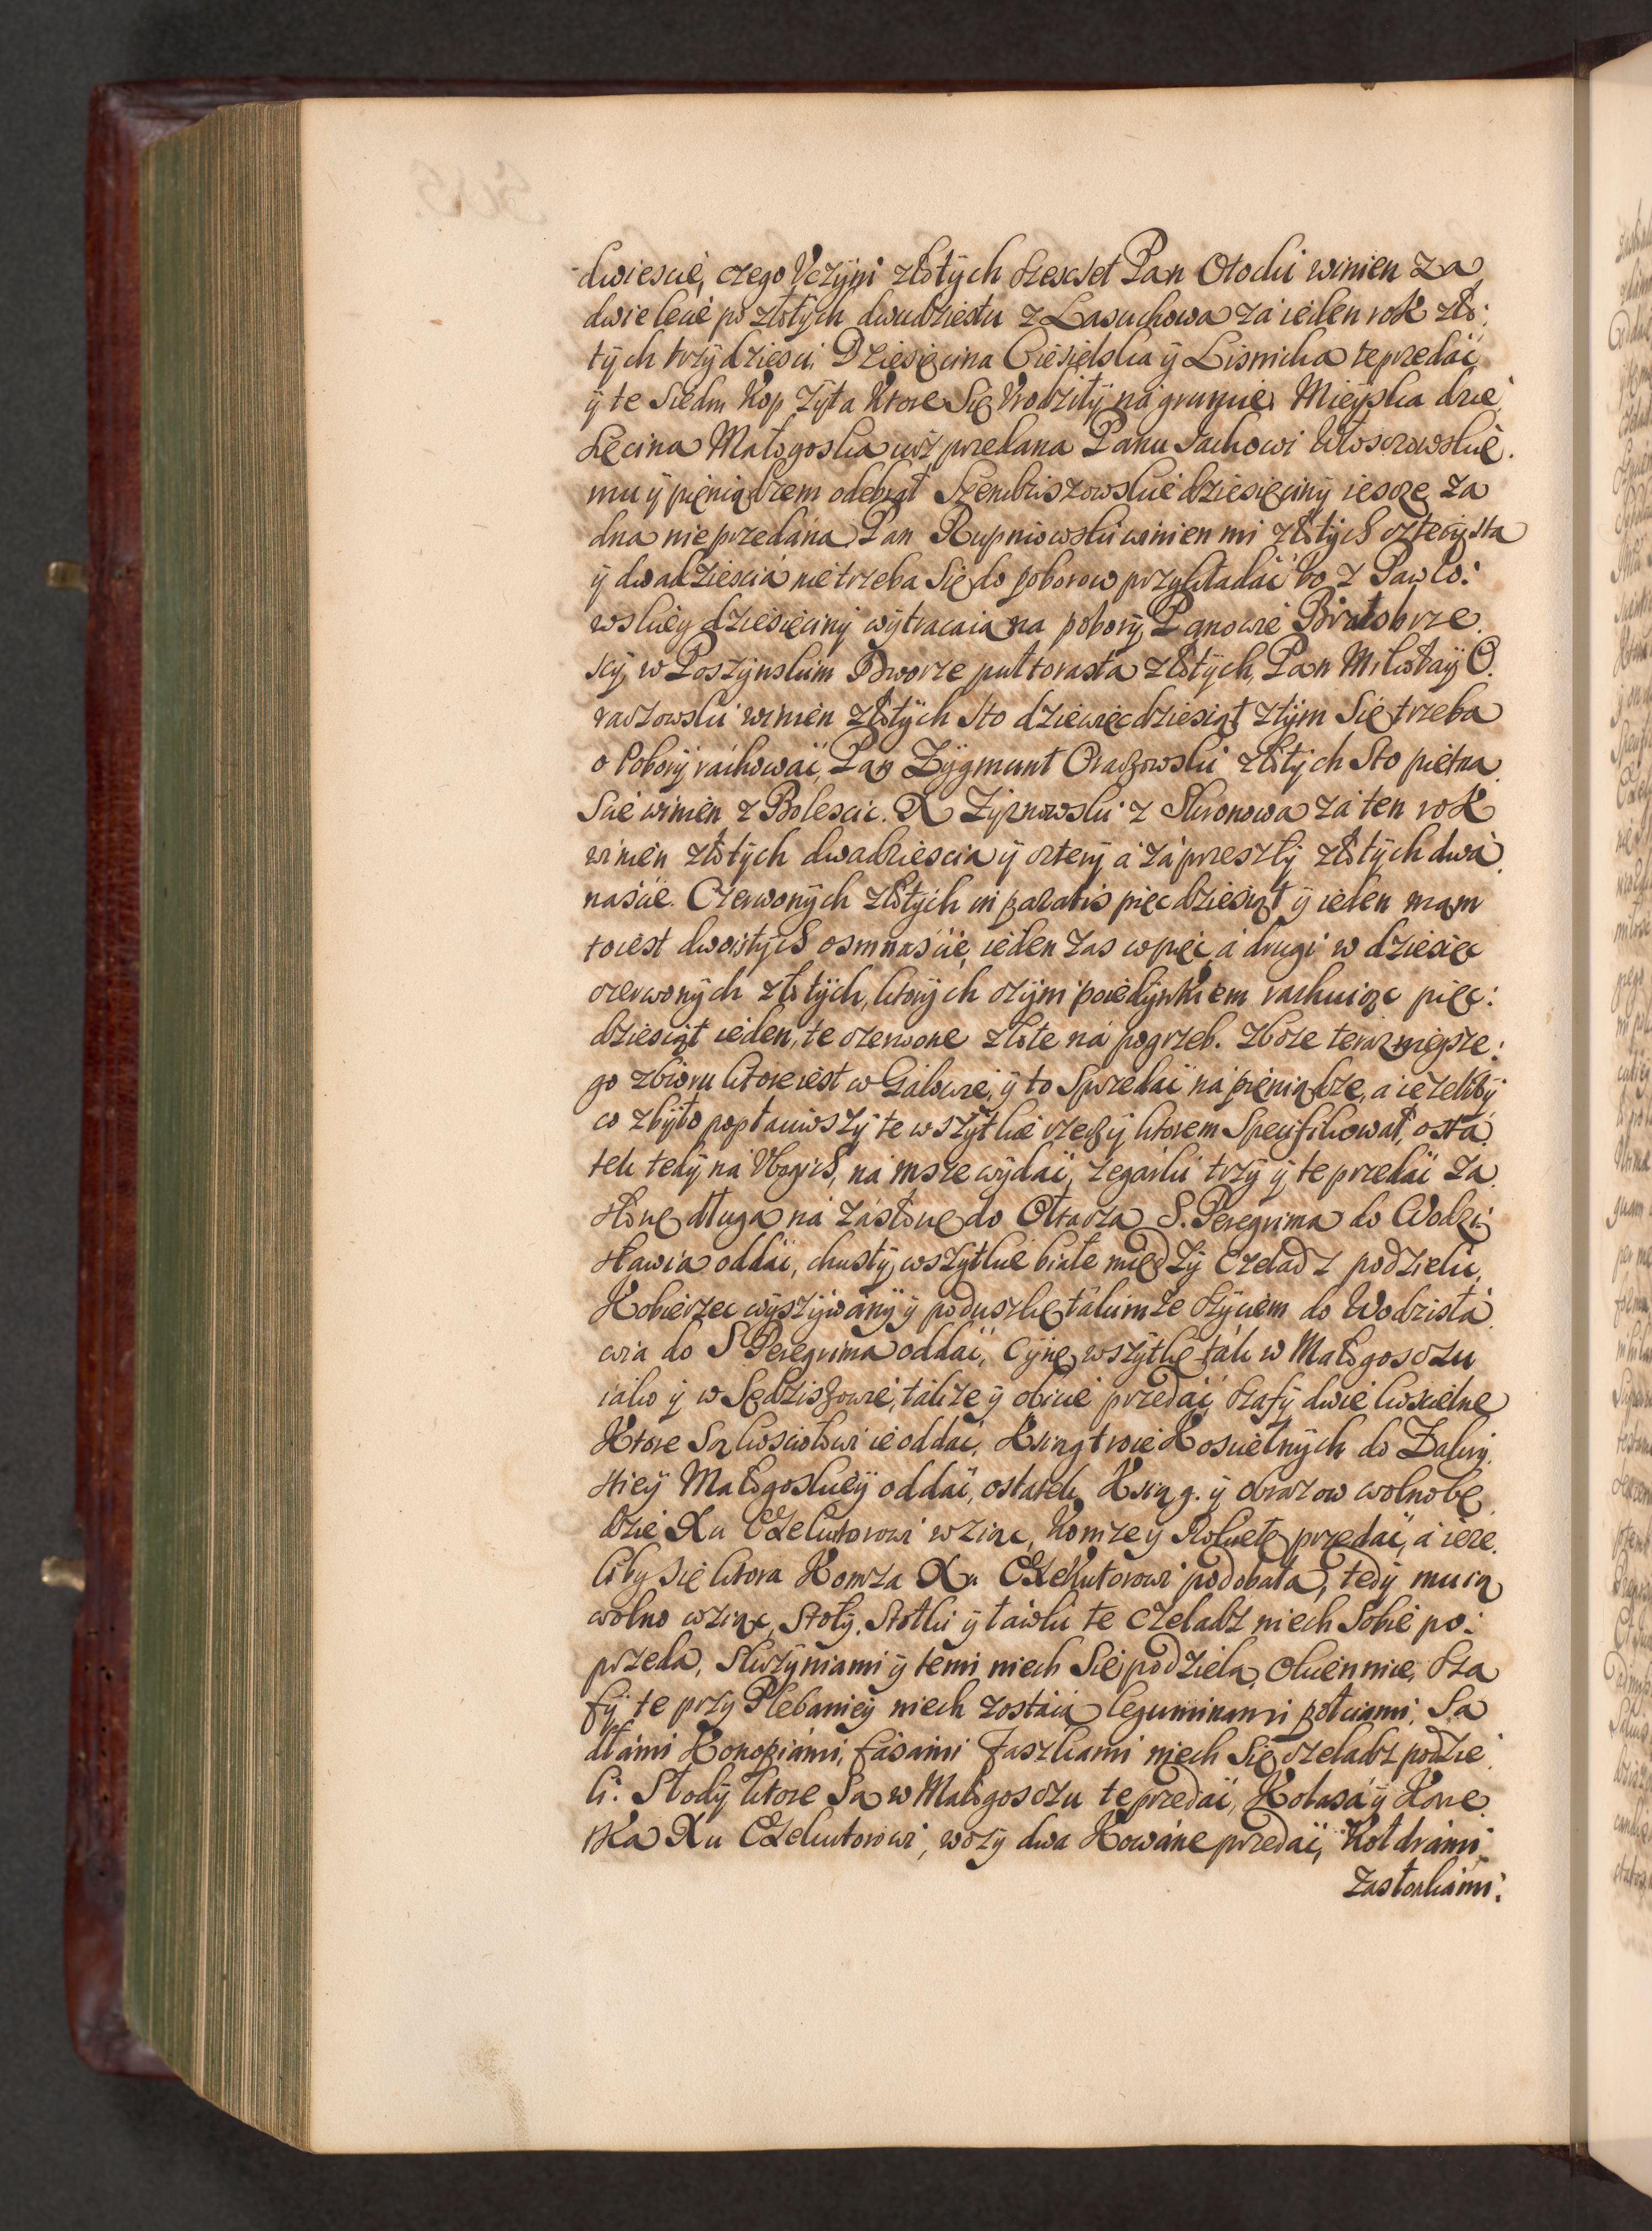 dwiescie, czego Vczÿni złotÿch szescset Pan Otocki winien za
dwie lecie po złotÿch dwudziestu z Lasuchowa za ieden rok zło:
tÿch trzÿdziesci. Dziesięcina Ciesielska ÿ Lisnicka te przedać
ÿ te siedm kop zÿta ktore się Vrodziłÿ na gruncie Mieÿska dzie
sięcina Małogoska iuż przedana Panu Jachowi Włosczowskie.
mu ÿ pieniądzem odebrał Szendziszowskie dziesięcinÿ iescze za
dna nie przedana, Pan Rupniowski winien mi złotÿch czterÿsta
ÿ dwadziescia nie trzeba się do poborow przykładać bo z Pawło:
wskieÿ dziesięcinÿ wÿtracaia na poborÿ, Panowie Białobrze.
scÿ, w Poszÿnskim Dworze pułtorasta złotÿch, Pan Mikołaÿ O.
raczowski winien złotÿch sto dziewięcdziesiąt z tÿm się trzeba
o Poborÿ rachowac, Pan Zÿgmunt Oraczowski złotÿch sto piętna
scie winien z Bolescic. X Zÿrnowski z Skronowa za ten rok
winien złotÿch dwadziescia ÿ czterÿ a za przeszłÿ złotÿch dwa
nascie. Czerwonÿch złotÿch in paratis pięcdziesiąt ÿ ieden mam
to iest dwoistÿch osmnascie, ieden zas w pięc, a drugi w dziesięc
czerwonÿch złotÿch, ktorÿch czÿni poiedÿnkiem rachuiąc pięc:
dziesiąt ieden, te czerwone złote na pogrzeb. Zboze terazniejsze:
go zbioru ktore iest w Gałowie, ÿ to sprzedac na pieniądze, a iezelibÿ
co zbÿło popłaciwszÿ te wszÿtkie rzeczÿ ktorem specifikował, osta.
tek tedÿ na Vbogich, na msze wÿdac, zegarki trzÿ ÿ te przedac za
słonę długa na zasłonę do Ołtarza S. Peregrima do Wodzi:
sławia oddac, chustÿ wszÿtkie białe międzÿ Czeladz podzielic,
Kobierzec wÿszÿwanÿ ÿ poduszkę takimze szÿciem do Wodzisła
wia do S Peregrima oddac, Cÿnę wszÿtkę tak w Małogosczu
iako ÿ w Sędziszowie, takze ÿ obicie przedac szafÿ dwie koscielne
Ktore są kosciołowi ie oddac, Ksiąg troie Koscielnÿch do Zakrÿ.
stieÿ Małogoskieÿ oddac, ostatek Ksiąg. ÿ obrazow wolno bę
dzie Xu Exekutorowi wziąc, Komze ÿ Rokietę przedac, a ieze.
liby się ktora Komza Xu Exekutorowi podobała, tedÿ mu ią
wolno wziąc, Stołÿ. Stołki ÿ ławki te czeladz niech sobie po:
przeda, skrzÿniami ÿ temi niech się podziela, okiennice, sza
fÿ te przÿ Plebanieÿ niech zostaią leguminami połciami, Sa
dłami Konopiami, fasami faszkami niech się czeladz podzie
li. Słodÿ ktore sa w Małogosczu te przedac, Kolasa ÿ Kone.
ska Xu Exekutorowi, wozÿ dwa Kowane przedac, Kołdrami
zasłonkami: